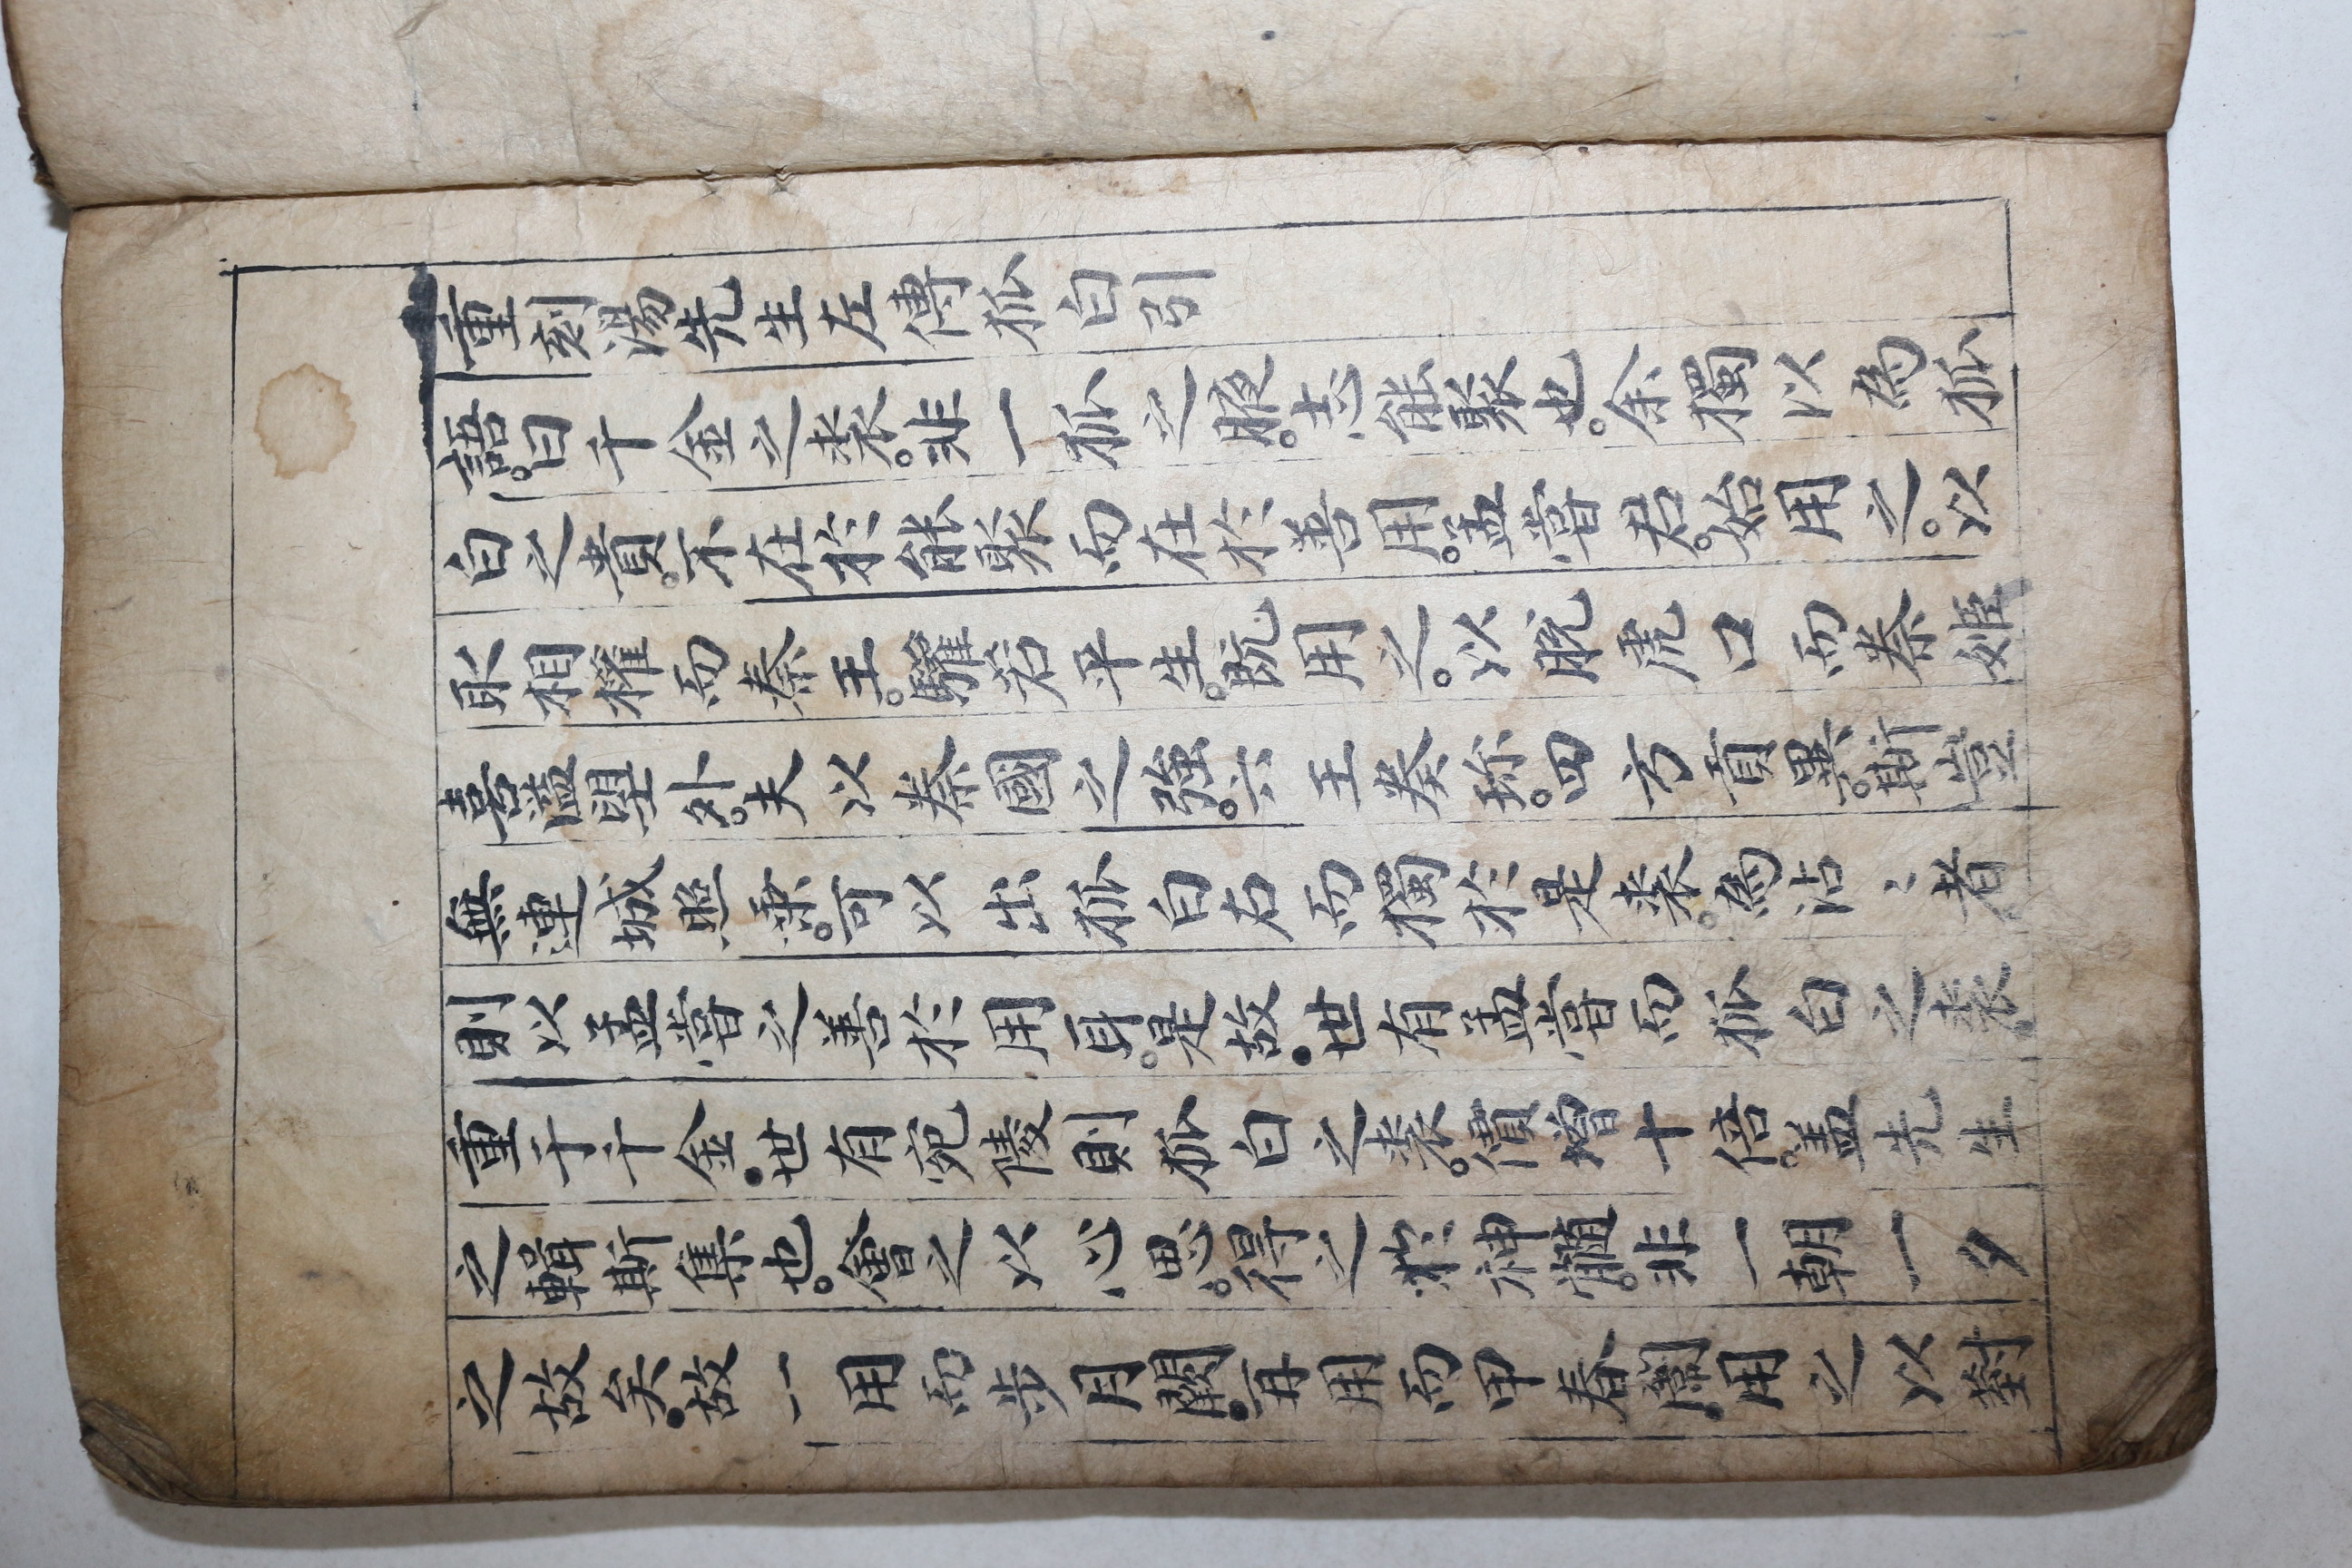 重刻湯先生左傳狐白引
語曰千金之裘非一狐之腋志能聚也余獨以為狐
白之貴不在於能聚而在於善用孟嘗君始用之以
取相權而秦王驩若平生既用之以脫虎口而秦姬
喜溢望外夫以秦國之強六王奏珎四方貢異斯豈
無連城照乘可以出狐白右而獨於是裘為沾〻者
則以孟嘗之善於用耳是故世有孟嘗而狐白之裘
重于千金世有宛陵則狐白之裘價增十倍盖先生
之輯斯集也會之以心思得之於神髓非一朝一夕
之故矣故一用而步月闕再用而甲春闈用之以對